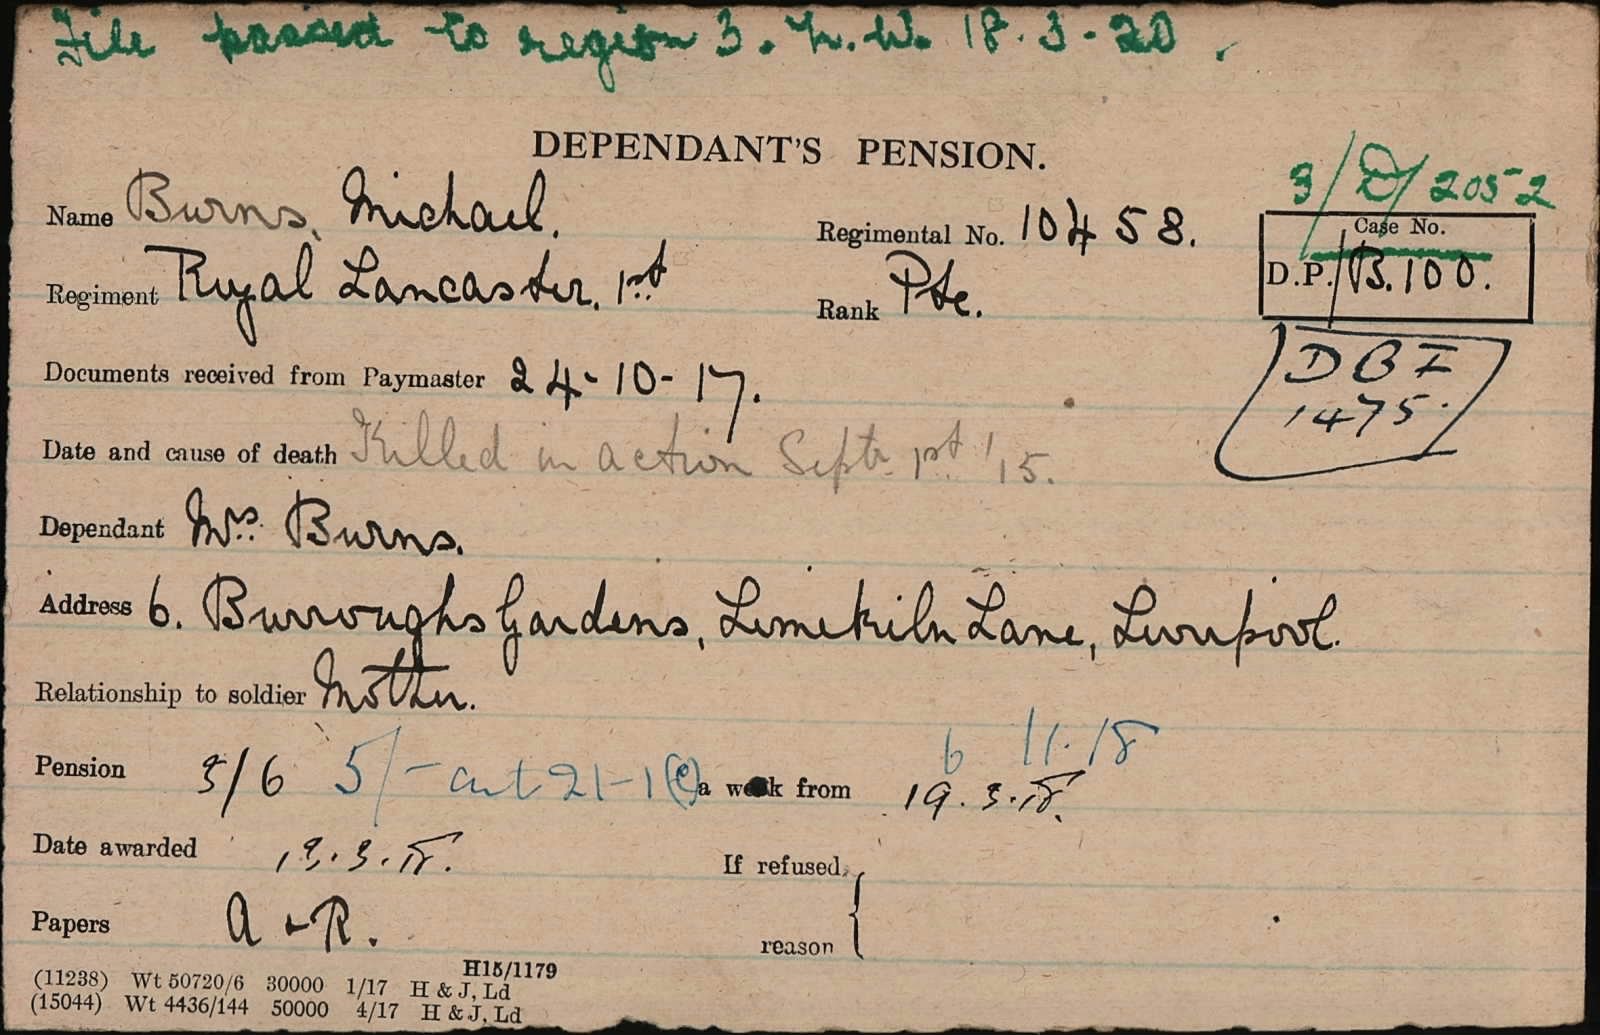 File passed to region 3. N.W. 18.3-20.
DEPENDANT'S PENSION.
3/D/2052
Name Burns, Michael.
Regimental No. 10458.
Case No.
D.P./B.100.
Regiment Royal Lancaster, 1st
Rank Pte.
DBI
1475.
Documents received from Paymaster 24-10-17.
Date and cause of death Killed in action Septr. 1st '15.
Dependant Mrs. Burns.
Address 6. Burroughs Gardens, Limekiln Lane, Liverpool.
Relationship to soldier Mother.
6 11.18
Pension 3/6 5/- art 21-1(c) a week from 19.3.18.
Date awarded 13.3.18.
If refused,
Papers A & R.
reason
H15/1179
(11238) Wt 50720/6 30000 1/17 H & J, Ld
(15044) Wt 4436/144 50000 4/17 H & J, Ld